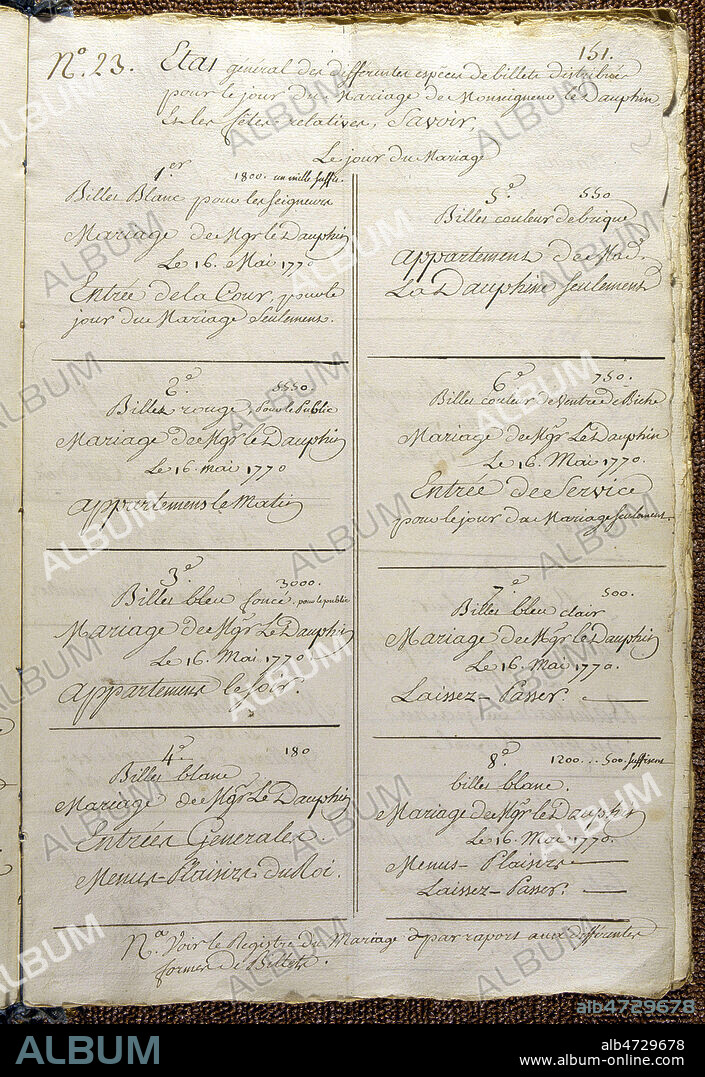 N.º 23.
151.
Etat général des différentes espèces de billets distribués
pour le jour du Mariage de Monseigneur le Dauphin
Et les fêtes relatives, Savoir,
Le jour du Mariage
1.er 1800. un mille suffir.
Billet Blanc pour les seigneurs
Mariage de Mgr Le Dauphin
Le 16. Mai 1770
Entrée de la Cour, pour le
jour du Mariage Seulement.
2.e 5550.
Billet rouge, pour le Public
Mariage de Mgr Le Dauphin
Le 16. mai 1770
appartemens le Matin
3.e 3000.
Billet bleu foncé, pour le public
Mariage de Mgr Le Dauphin
Le 16. Mai 1770.
appartemens le soir.
4.e 180
Billet blanc
Mariage de Mgr Le Dauphin
Entrées Generales.
Menus-Plaisirs Du Roi.
5.e 550
Billet couleur de brique
appartement de Mad.e
La Dauphine Seulement
6.e 750.
Billet couleur de Ventre de Biche
Mariage de Mgr Le Dauphin
Le 16. Mai 1770.
Entrée de Service
pour le jour du Mariage seulement.
7.e 500.
Billet bleu clair
Mariage de Mgr Le Dauphin
Le 16. Mai 1770.
Laissez-Passer.
8.e 1200... 500. suffisent
billet blanc.
Mariage de Mgr Le Dauphin
Le 16. Mai 1770.
Menus-Plaisirs
Laissez-Passer.
N.a Voir le Registre du Mariage par raport aux différentes
formes de Billets.
ALBUM
alb4729678
ALBUM
alb4729678
www.album-online.com